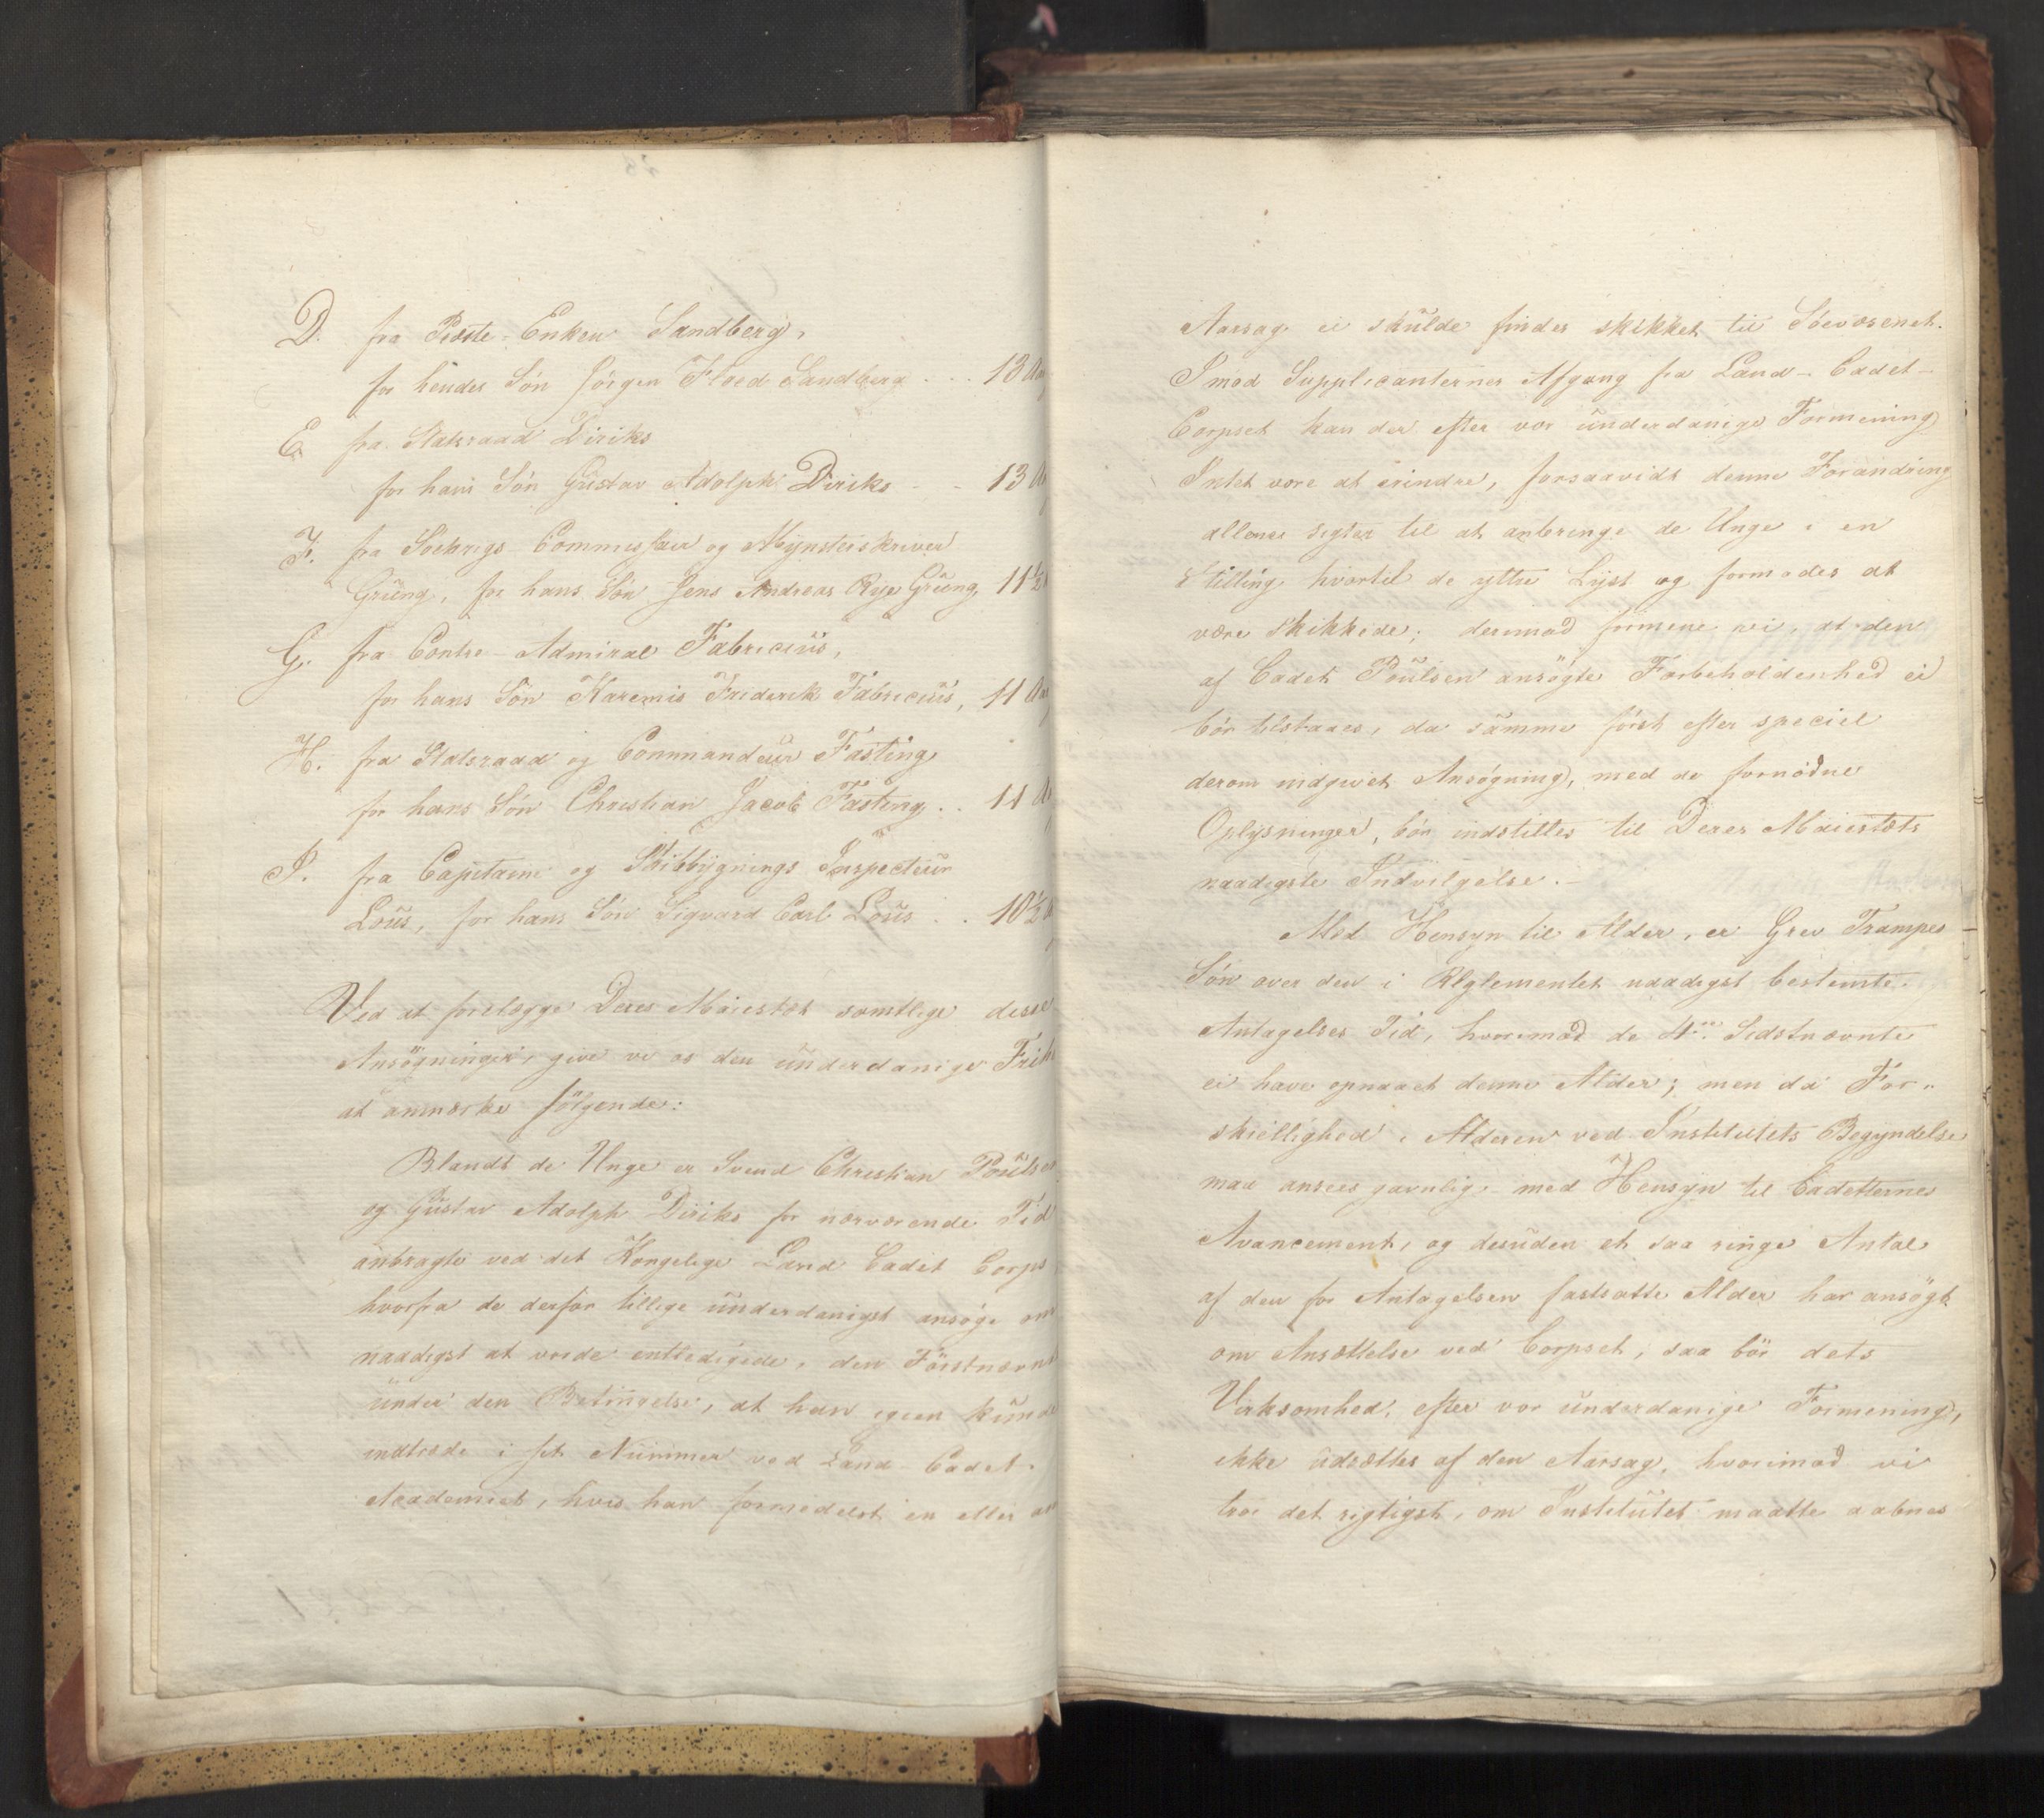 D. fra Præste-Enken Sandberg,
for hendes Søn Jørgen Floed Sandberg . . . 13 Aar
E. fra Statsraad Diriks
for hans Søn Gustav Adolph Diriks - - 13
F. fra Søekrigs Commissair og Mynsterskriver
Grüng, for hans Søn Jens Andreas Rye Grüng, 11½
G. fra Contre-Admiral Fabricius,
for hans Søn Frederik Fabricius, 11 Aar
H. fra Statsraad og Commandeur Fasting
for hans Søn Christian Jacob Fasting . . 11
I. fra Capitaine og Skibbygnings Inspecteur
Lous, for hans Søn Sigvard Carl Lous . . 10½
Ved at forelægge Deres Maiestæt samtlige disse
Ansøgninger, give vi os den underdanige Frih
at anmærke følgende:
Blandt de Unge er Svend Christian Poulsen
og Gustav Adolph Diriks for nærværende Tid
anbragte ved det Kongelige Land Cadet Corps
hvorfra de derfor tillige underdanigst ansøge om
naadigst at vorde entledigede, den Førstnævnte
under den Betingelse, at han igien kunde
indtræde i sit Nummer ved Land-Cadet-
Academiet, hvis han formedelst en eller an
Aarsag ei skulde findes skikket til Søevæsenet.
Imod Supplicanternes Afgang fra Land-Cadet-
Corpset kan der efter vor underdanige Formening
Intet være at erindre, forsaavidt denne Forandring
allene sigter til at anbringe de Unge i en
Stilling, hvortil de yttre Lyst og formodes at
være skikkede; derimod formene vi, at den
af Cadet Poulsen ansøgte Forbeholdenhed ei
bør tilstaaes, da samme først efter speciel
derom indgivet Ansøgning, med de fornødne
Oplysninger, bør indstilles til Deres Maiestæts
naadigste Indvilgelse.-
Med Hensyn til Alder, er Grev Trampes
Søn over den i Reglementet naadigst bestemte
Antagelses Tid, hvorimod de 4re Sidstnævnte
ei have opnaaet denne Alder; men da For-
skiellighed i Alderen ved Institutets Begyndelse
maa ansees gavnlig med Hensyn til Cadetternes
Avancement, og desuden et saa ringe Antal
af den for Antagelsen fastsatte Alder har ansøgt
om Ansættelse ved Corpset, saa bør dets
Virksomhed, efter vor underdanige Formening,
ikke udsættes af den Aarsag, hvorimod vi
troe det rigtigst, om Institutet maatte aabnes